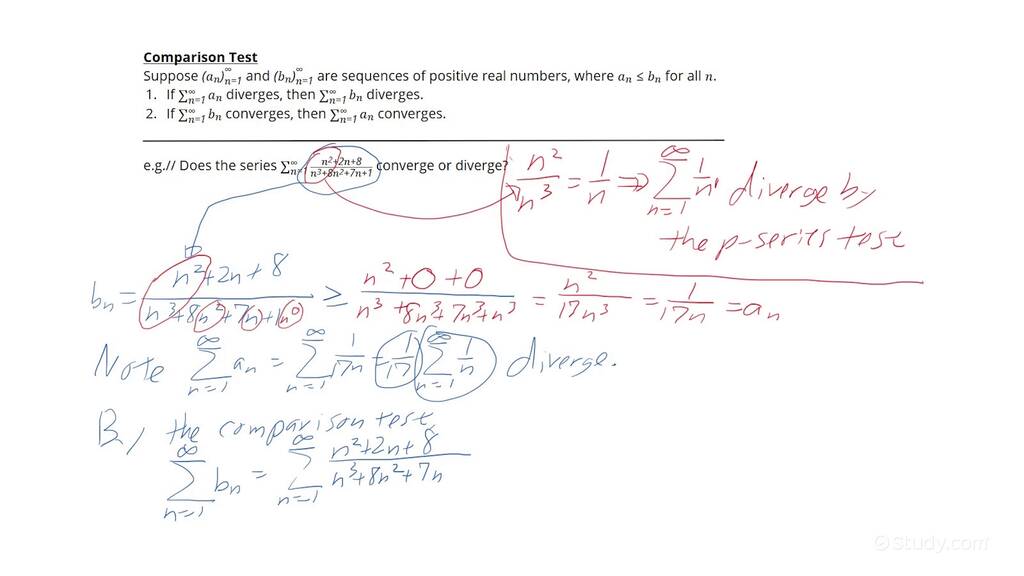 Comparison Test
Suppose (aₙ)ₙ₌₁^∞ and (bₙ)ₙ₌₁^∞ are sequences of positive real numbers, where aₙ ≤ bₙ for all n.
1. If ∑ₙ₌₁^∞ aₙ diverges, then ∑ₙ₌₁^∞ bₙ diverges.
2. If ∑ₙ₌₁^∞ bₙ converges, then ∑ₙ₌₁^∞ aₙ converges.
e.g.// Does the series ∑ₙ₌₁^∞ (n²+2n+8)/(n³+8n²+7n+1) converge or diverge?
n²/n³ = 1/n ⇒ ∑ₙ₌₁^∞ 1/n diverge by
the p-series test
bₙ = (n²+2n+8)/(n³+8n²+7n+1n⁰) ≥ (n²+0+0)/(n³+8n³+7n³+n³) = n²/17n³ = 1/17n = aₙ
Note ∑ₙ₌₁^∞ aₙ = ∑ₙ₌₁^∞ 1/17n = 1/17 ∑ₙ₌₁^∞ 1/n diverge.
By the comparison test,
∑ₙ₌₁^∞ bₙ = ∑ₙ₌₁^∞ (n²+2n+8)/(n³+8n²+7n
Study.com